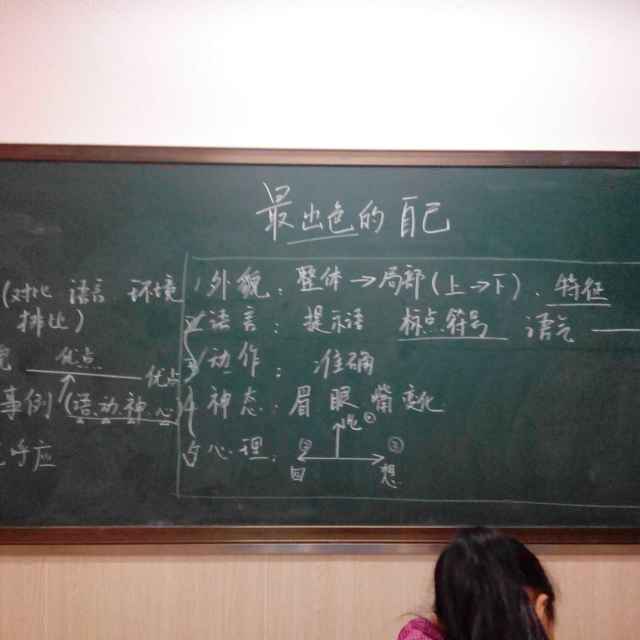 最出色的自己
(对比 语言 环境
排比)
优点
优点
事例(语动神心)
呼应
1外貌:整体→局部(上→下).特征
2语言:提示语 标点符号 语气
3动作:准确
4神态:眉眼嘴变化
5心理:
①
②
③
回
想